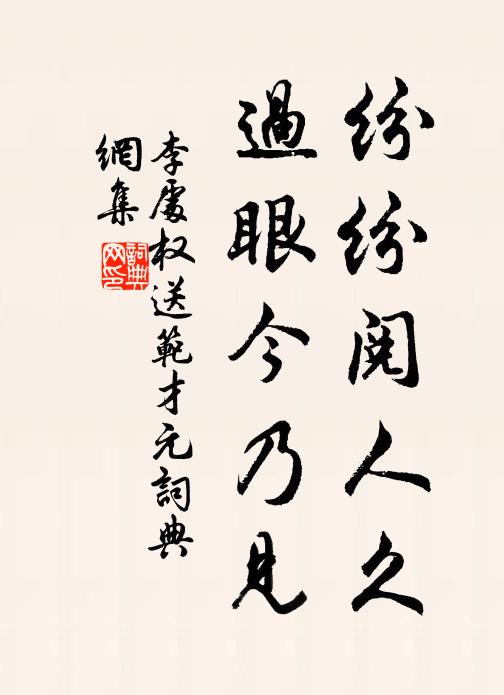 紛紛閱人久
過眼今乃見
李處权送範才元詞典
網集
詞典網印